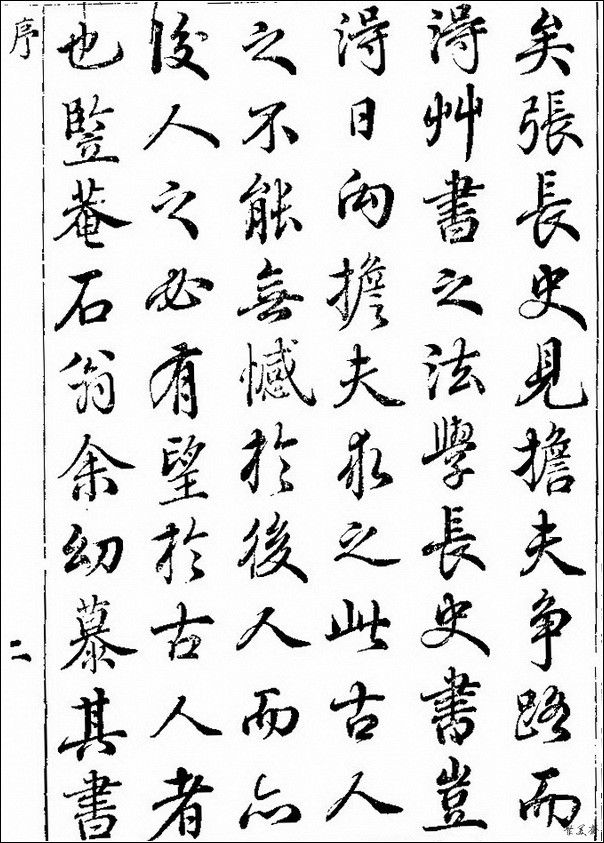 矣張長史見擔夫争路而
得艸書之法學長史書豈
得日向擔夫求之此古人
之不能無憾於後人而亦
後人之必有望於古人者
也豎菴石翁余幼慕其書
序
二